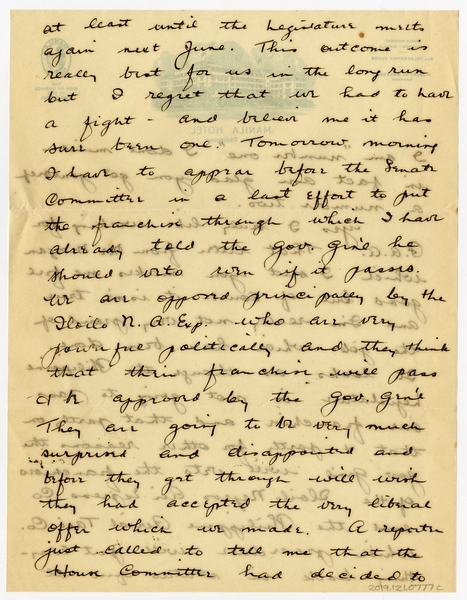 at least until the Legislature meets
again next June. This outcome is
really best for us in the long run
but I regret that we had to have
a fight - and believe me it has
sure been one. Tomorrow morning
I have to appear before the Senate
Committee in a last effort to put
the franchise through which I have
already told the Gov. Gn'l he
should veto even if it passes.
We are opposed principally by the
Iloilo N. A. Exp. who are very
powerful politically and they think
that their franchise will pass
& be approved by the Gov. Gn'l
They are going to be very much
surprised and disappointed and
before they get through will wish
they had accepted the very liberal
offer which we made. A reporter
just called to tell me that the
House Committee had decided to
MANILA HOTEL
2019.12L0777c